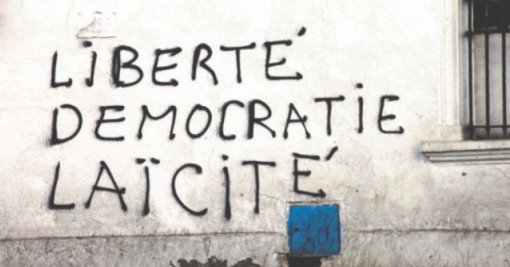 LIBERTÉ
DEMOCRATIE
LAÏCITÉ